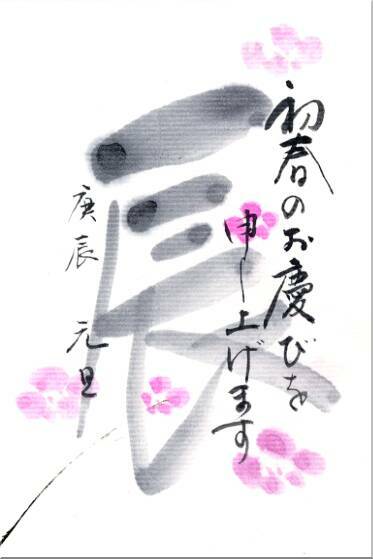 初春のお慶びを
申し上げます
辰
庚辰 元旦